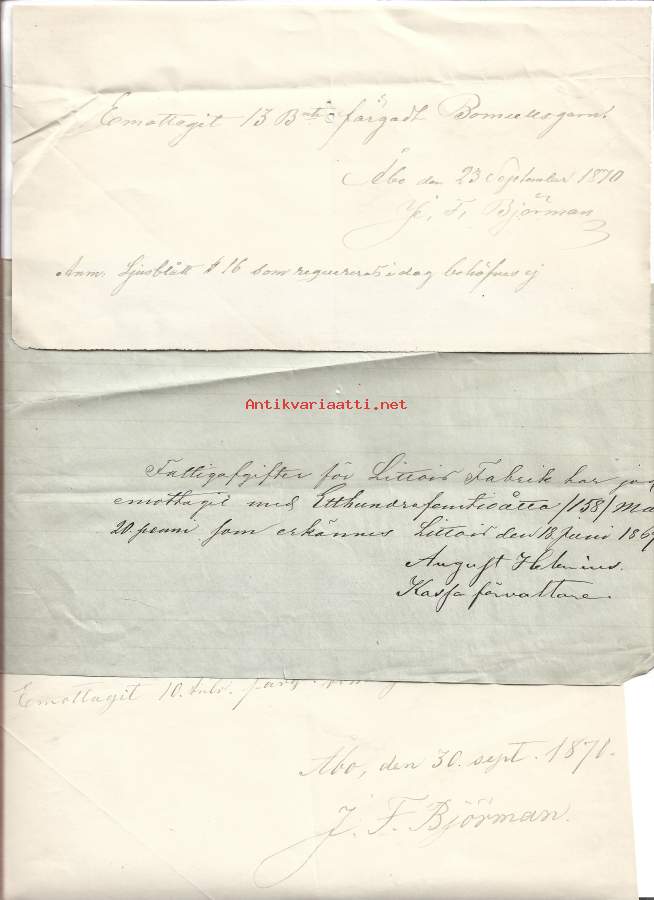 Emottagit 13 färgadt Bomullsgarn
Åbo den 23 September 1870
J. F. Björman
Anm. Ljusblått # 16 som requireras i dag behöfves ej
Antikvariaatti.net
Fattigafgifter för Littois Fabrik har jag
emottagit med Etthundrafemtioåtta /158/ Ma
20 penni som erkännes Littois den 18 Juni 186
August Helenius.
Kassaförvaltare.
Emottagit 10.
Åbo, den 30. sept. 1870.
J. F. Björman.